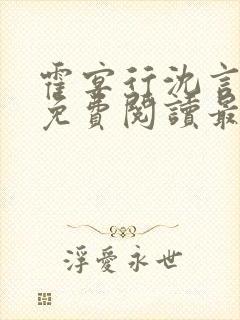 霍宴行沈言
免費閱讀最
浮愛永世